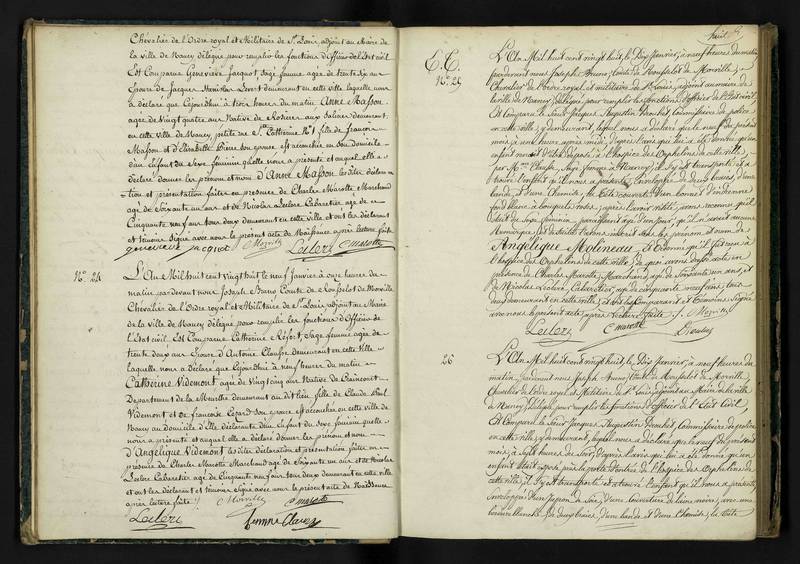 Chevalier de l'Ordre royal et Militaire de St Louis, adjoint au Maire de
la ville de Nancy délégué pour remplir les fonctions d'officier de l'état civil
Est Comparue Geneviève Jacquot, Sage femme agée de trente six ans
Epouse de Jacques demeurant en cette ville laquelle nous
a déclaré que Cejourd'hui à trois heures du matin Anne Masson
agée de vingt quatre ans Native de Rosieres aux Salines demeurant
en cette ville de Nancy, petite rue Ste Catherine No 1 fille de françois
Masson et d'Elisabeth son épouse est accouchée en son domicile
d'un Enfant du Sexe féminin qu'elle nous a présenté et auquel elle a
déclaré donner les prénom et nom d'Anne Masson les dites déclara-
-tion et présentation faites en présence de Charles Marotte Marchand
agé de Soixante un ans et de Nicolas Leclerc Cabaretier, agé de
Cinquante neuf ans tous deux demeurant en cette ville et ont les déclarant
et témoins Signé avec nous le présent acte de Naissance après lecture faite
genevieve jacquot Morville Leclerc C marotte
No 24
L'An Mil huit cent vingt huit le neuf Janvier à onze heures du
matin par devant nous Joseph Bruno Comte de Rousselot de Morville
Chevalier de l'Ordre royal et Militaire de St Louis, adjoint au Maire
de la Ville de Nancy délégué pour remplir les fonctions d'Officier de
l'Etat civil Est Comparue Catherine Sage femme agée de
trente deux ans Epouse d'Antoine demeurant en cette Ville
laquelle nous a déclaré que Cejourd'hui à neuf heures du matin
Catherine Videmont agée de vingt cinq ans Native de Craincourt
Département de la Meurthe demeurant au dit lieu fille de Claude Paul
Videmont et de françoise son épouse est accouchée en cette ville de
Nancy au domicile d'Elle déclarante d'un Enfant du Sexe féminin qu'elle
nous a présenté et auquel elle a déclaré donner les prénom et nom
d'Angélique Videmont les dites déclaration et présentation faites en
présence de Charles Marotte Marchand agé de Soixante un ans et de Nicolas
Leclerc Cabaretier agé de Cinquante neuf ans tous deux demeurant en cette ville
et ont les déclarant et témoins Signé avec nous le présent acte de Naissance
après lecture faite
Morville C marotte
Leclerc femme
huit
No 25
L'An Mil huit cent vingt huit, le Dix Janvier, à neuf heures du matin
pardevant nous Joseph Bruno Comte de Rousselot de Morville,
Chevalier de l'Ordre royal et militaire de St Louis, adjoint au maire de
la ville de Nancy délégué pour remplir les fonctions d'officier de l'Etat civil,
Est Comparu le Sieur Jacques Augustin Commissaire de police
en cette ville, y demeurant, lequel nous a déclaré que le neuf du présent
mois, à une heure après midi, d'après l'avis qui lui a été donné qu'un
enfant venait d'être déposé à l'hospice des Orphelins de cette ville
par Mme Sage femme à Nancy, il s'y est transporté et a
trouvé l'enfant qu'il nous a présenté, enveloppé de deux d'une
bande, d'une Chemise, la tête couverte d'un bonnet d'indienne
fond blanc à bouquets roses; après l'avoir visité, avons reconnu qu'il
était du Sexe féminin, paraissant agé d'un jour, qu'il n'avait aucune
remarque les prénom et nom de
Angélique Molineau, et Ordonné qu'il fut remis à
l'hospice des Orphelins de cette ville, de quoi avons dressé acte en
présence de Charles Marotte, Marchand, agé de Soixante un ans, et
de Nicolas Leclerc, Cabaretier, agé de cinquante neuf ans, tous
deux demeurant en cette ville, et ont les Comparant et Témoins Signé
avec nous le présent acte, après lecture faite. Morville
Leclerc C marotte
26
L'An Mil huit cent vingt huit, le Dix Janvier, à neuf heures du
matin, pardevant nous Joseph Bruno, Comte de Rousselot de Morville,
Chevalier de l'ordre royal et Militaire de St Louis, adjoint au Maire de la ville
de Nancy, délégué pour remplir les fonctions d'officier de l'Etat Civil,
Est Comparu le Sieur Jacques Augustin Commissaire de police
en cette ville, y demeurant, lequel nous a déclaré que le neuf du présent
mois, à sept heures du soir, d'après l'avis qui lui a été donné qu'un
enfant était exposé près la porte d'entrée de l'hospice des Orphelins de
cette ville, il s'y est transporté et a trouvé l'enfant qu'il nous a présenté,
enveloppé d'un jupon de d'une couverture de laine avec une
bordure blanche, de deux d'une bande et d'une Chemise, la tête